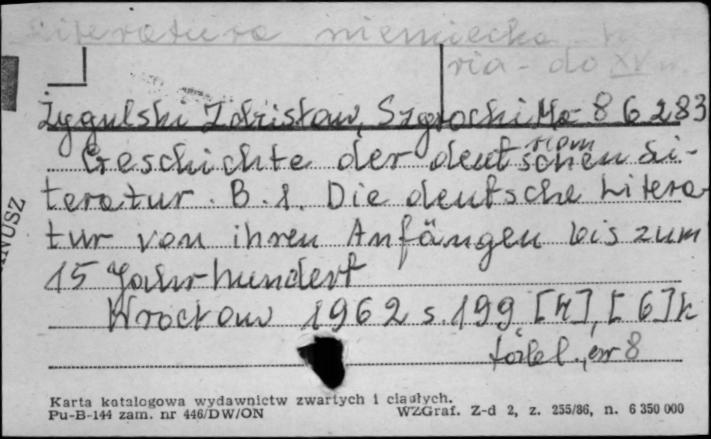 Literatura niemiecka
ria - do XV w.
Żygulski Zdzisław, Szyrocki Ma- 86283
rian
Geschichte der deutschen Li-
teratur. B. 1. Die deutsche Litera-
tur von ihren Anfängen bis zum
15 Jahrhundert
Wrocław 1962 s. 199, [4], [6] k
tabl., err 8
NUSZ
Karta katalogowa wydawnictw zwartych i ciągłych.
Pu-B-144 zam. nr 446/DW/ON WZGraf. Z-d 2, z. 255/86, n. 6 350 000